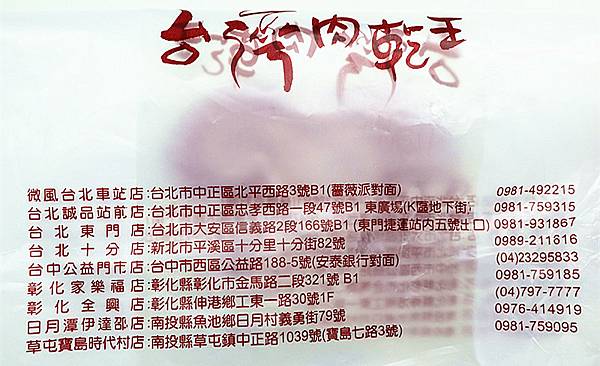 台灣肉乾王
微風台北車站店:台北市中正區北平西路3號B1(薔薇派對面) 0981-492215
台北誠品站前店:台北市中正區忠孝西路一段47號B1 東廣場(K區地下街) 0981-759315
台北東門店:台北市大安區信義路2段166號B1(東門捷運站內五號出口) 0981-931867
台北十分店:新北市平溪區十分里十分街82號 0989-211616
台中公益門市店:台中市西區公益路188-5號(安泰銀行對面) (04)23295833
彰化家樂福店:彰化縣彰化市金馬路二段321號 B1 0981-759185
彰化全興店:彰化縣伸港鄉工東一路30號1F (04)797-7777
日月潭伊達邵店:南投縣魚池鄉日月村義勇街79號 0976-414919
草屯寶島時代村店:南投縣草屯鎮中正路1039號(寶島七路3號) 0981-759095